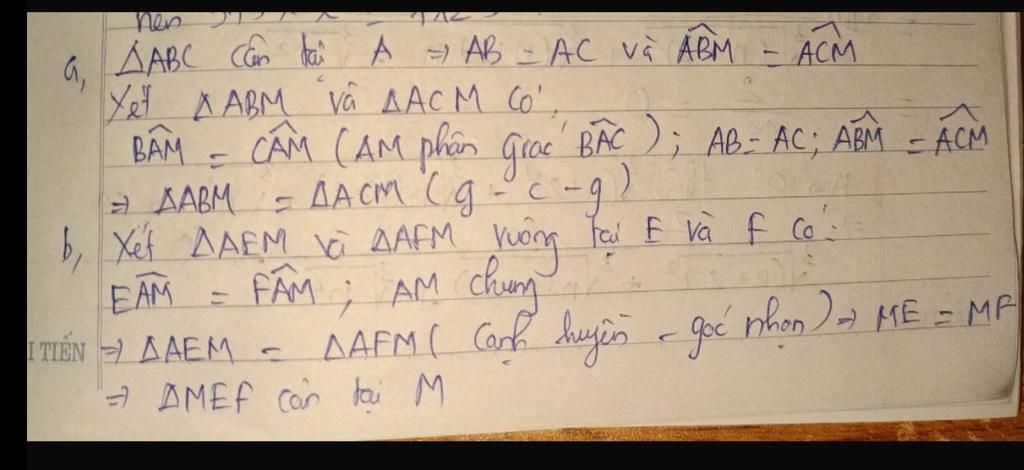 nên
a, ΔABC cân tại A ⇒ AB = AC và ABM̂ = ACM̂
Xét ΔABM và ΔACM có:
BÂM = CÂM (AM phân giác BÂC); AB = AC; ABM̂ = ACM̂
⇒ ΔABM = ΔACM (g - c - g)
b, Xét ΔAEM và ΔAFM vuông tại E và F có:
EÂM = FÂM ; AM chung
I TIẾN ⇒ ΔAEM = ΔAFM ( cạnh huyền - góc nhọn ) ⇒ ME = MF
⇒ ΔMEF cân tại M